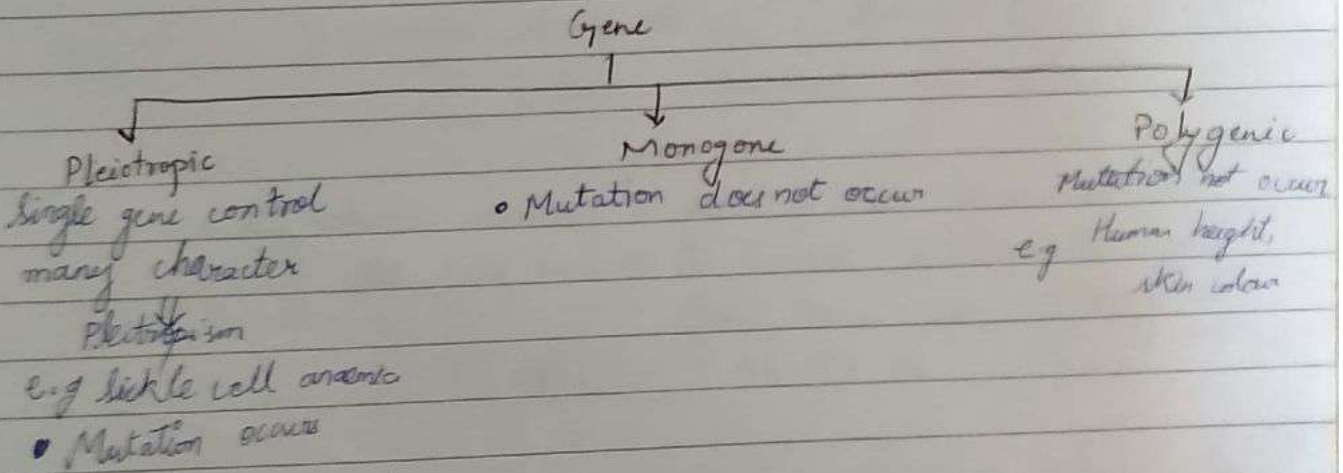 Gene
Pleiotropic
Single gene control
many character
Pleitropism
e.g Sickle cell anaemia
• Mutation occurs
Monogone
• Mutation does not occur
Polygenic
Mutation not occur
e.g Human height,
skin colour